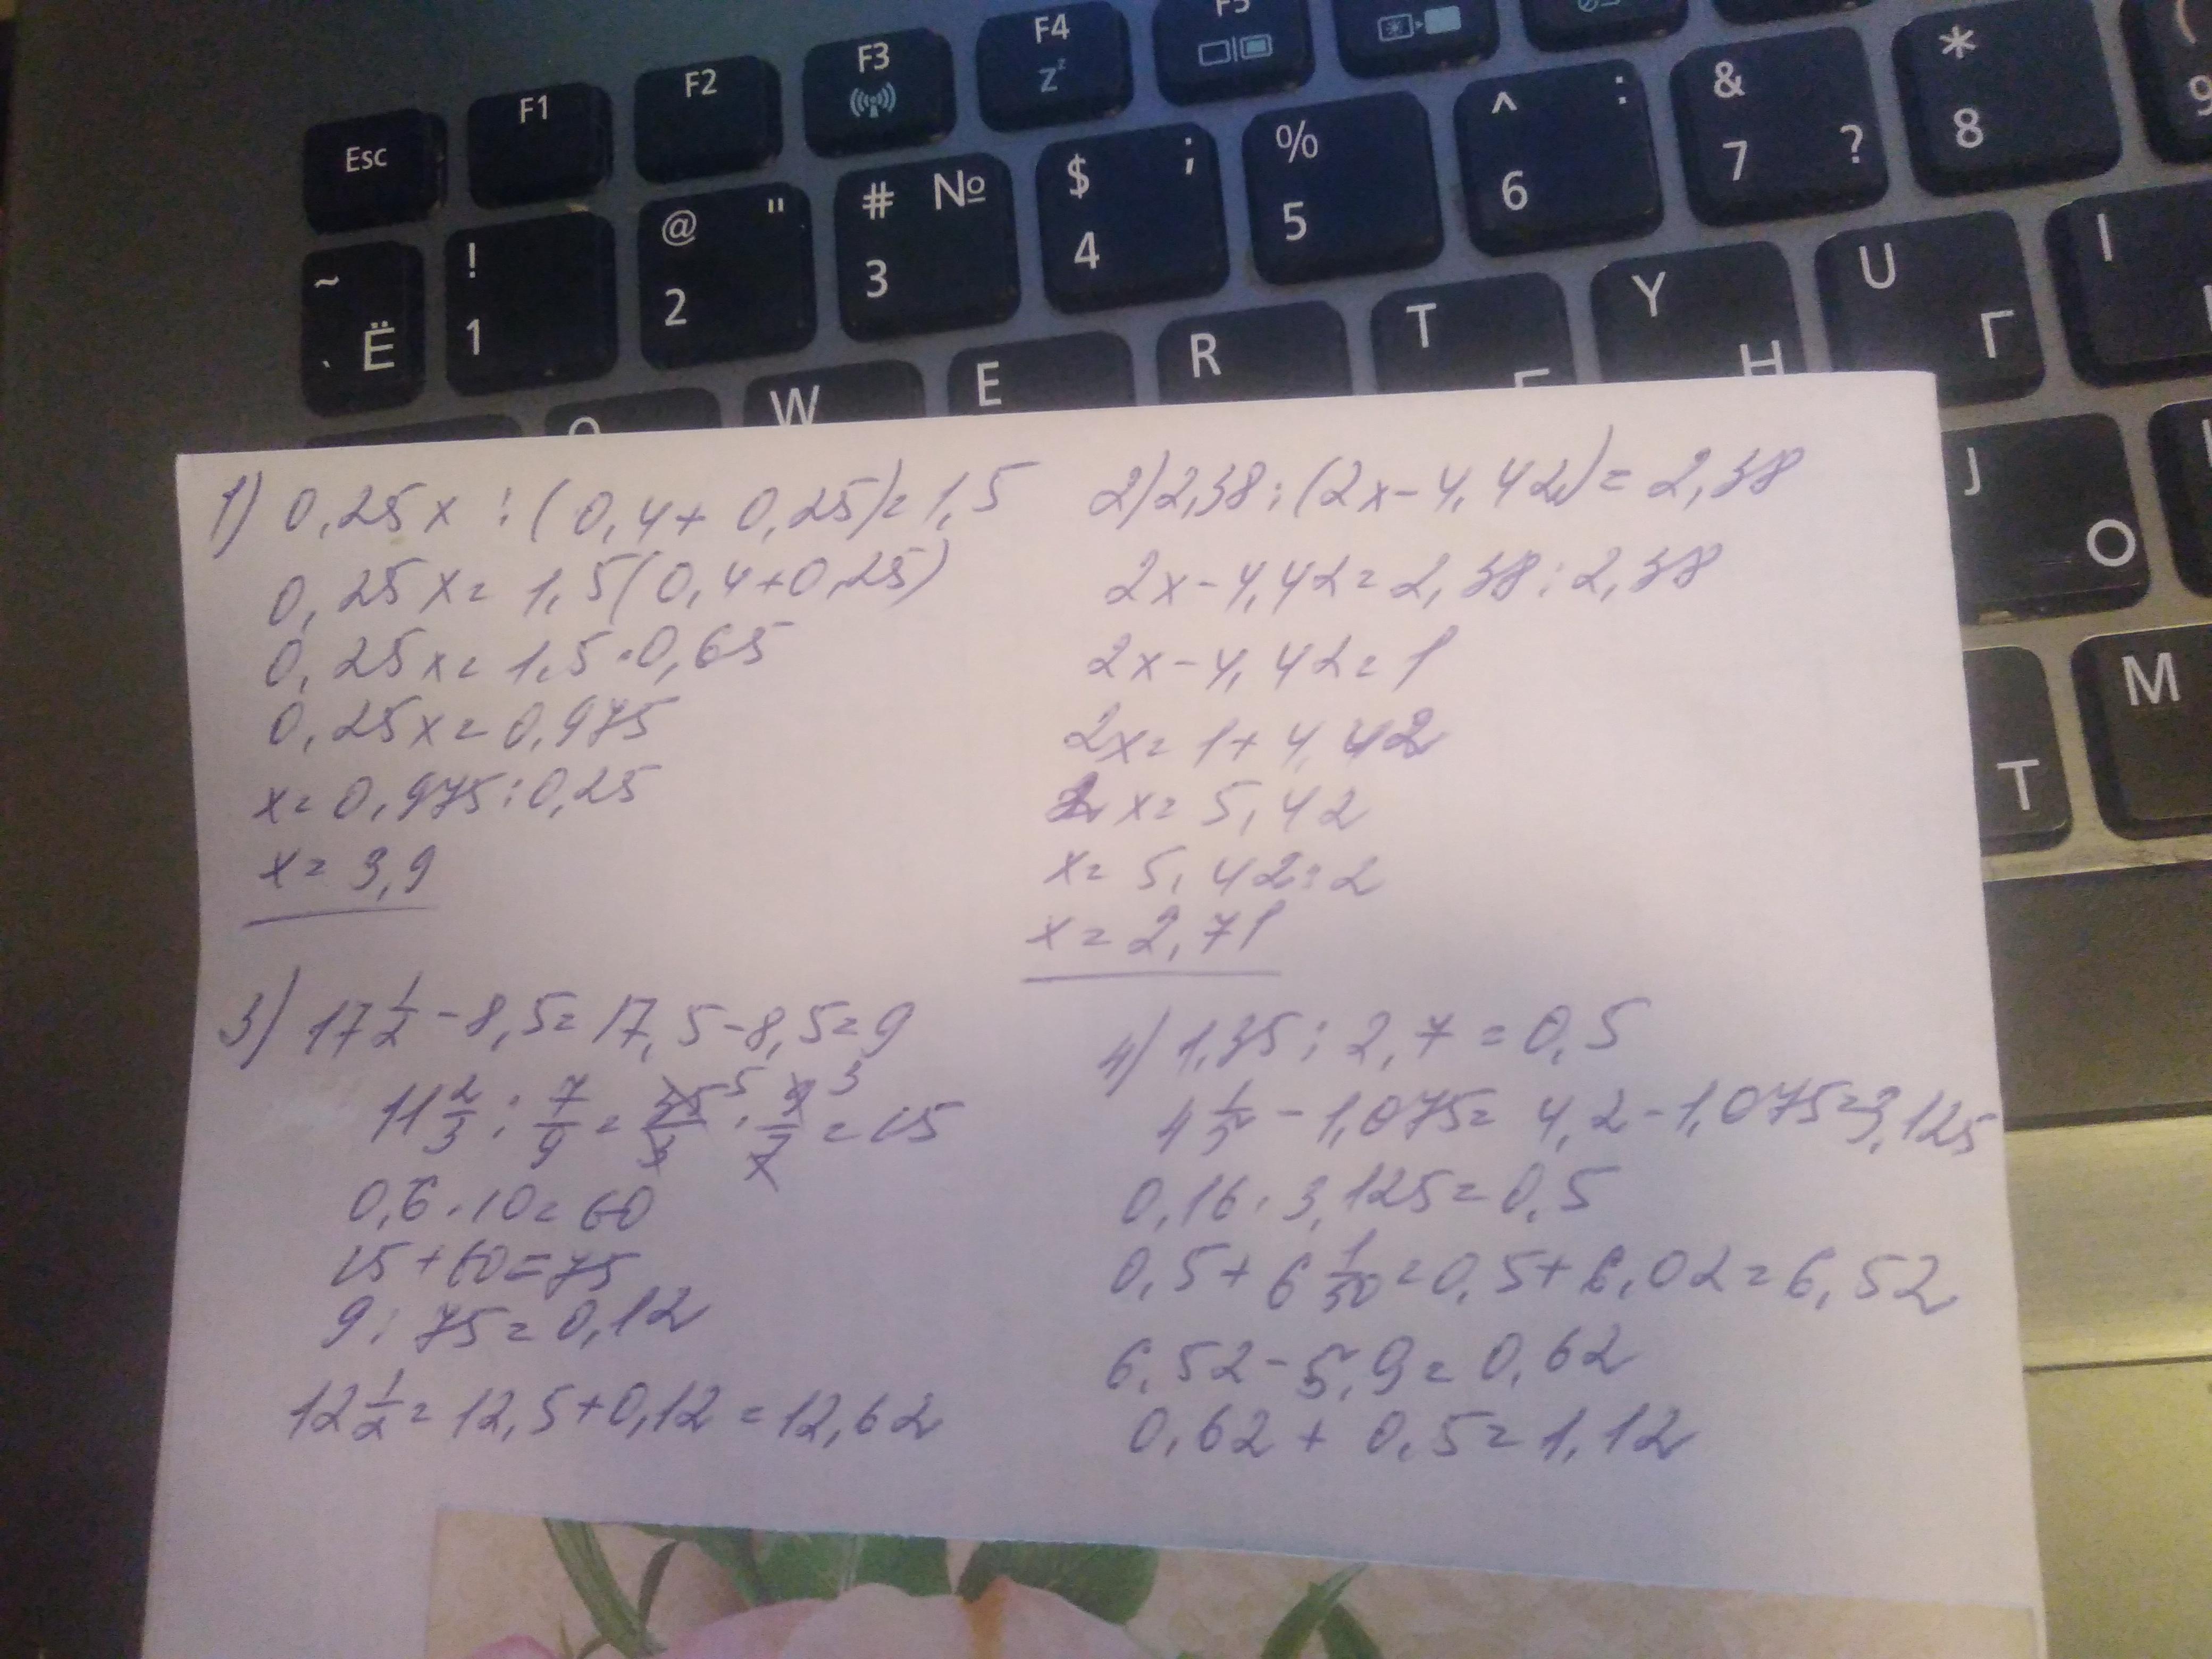 Esc F1 F2 F3 F4 Zz F5
~ ` Ё ! 1 @ " 2 # № 3 $ ; 4 % 5 ^ : 6 & 7 ? * 8 ( 9
W E R T Y Н U Г I
J О
M Т
1) 0,25x : (0,4+0,25)=1,5
0,25x=1,5(0,4+0,25)
0,25x=1,5·0,65
0,25x=0,975
x=0,975:0,25
x=3,9
2) 2,38:(2x-4,42)=2,38
2x-4,42=2,38:2,38
2x-4,42=1
2x=1+4,42
2x=5,42
x=5,42:2
x=2,71
3) 17 1/2 - 8,5=17,5-8,5=9
11 2/3 : 7/9 = 35/3 5 · 9/7 3 =15
0,6·10=60
15+60=75
9:75=0,12
12 1/2=12,5+0,12=12,62
4) 1,35:2,7=0,5
4 1/5 - 1,075=4,2-1,075=3,125
0,16·3,125=0,5
0,5+6 1/50=0,5+6,02=6,52
6,52-5,9=0,62
0,62+0,5=1,12